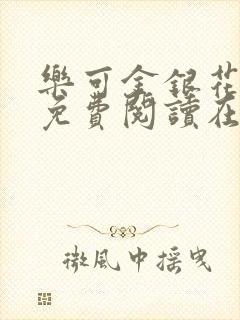 樂可金銀花
免費閱讀在
微風中搖曳